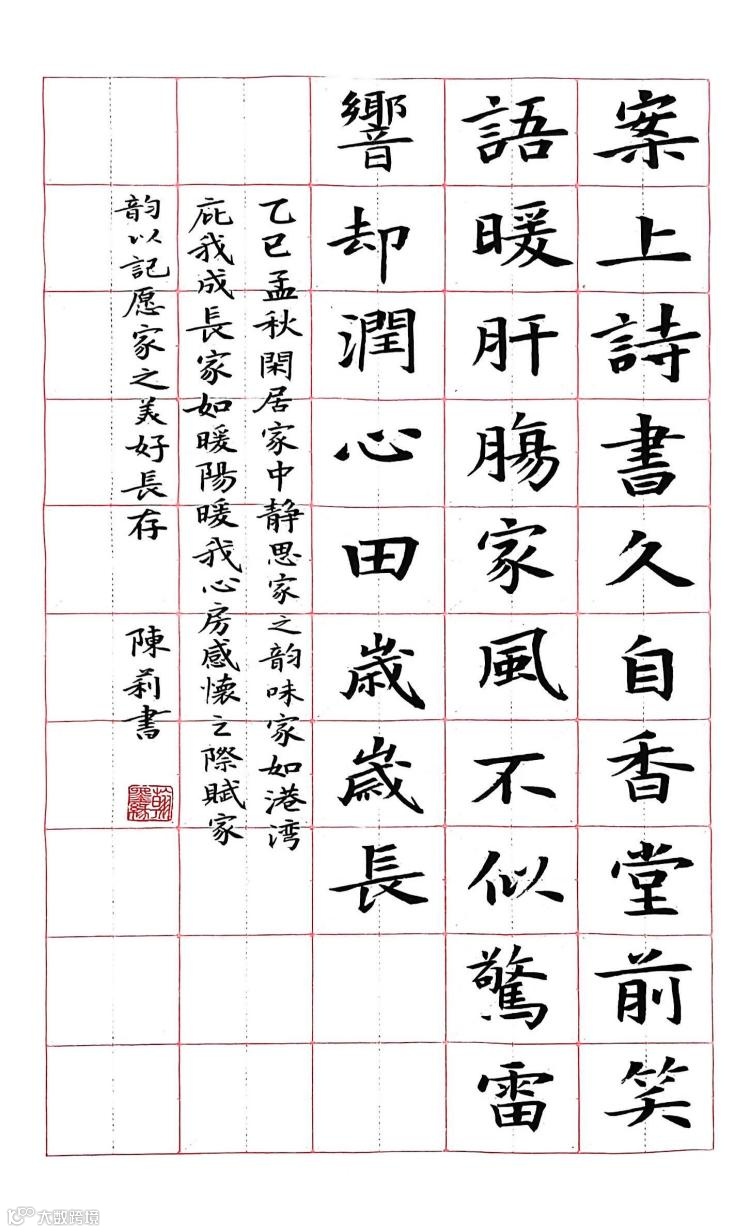 案上詩書久自香堂前笑
語暖肝腸家風不似驚雷
響却潤心田歲歲長
乙巳孟秋閑居家中静思家之韵味家如港湾
庇我成長家如暖陽暖我心房感懷之際賦家
韵以記愿家之美好長存
陳莉書
大数跨境